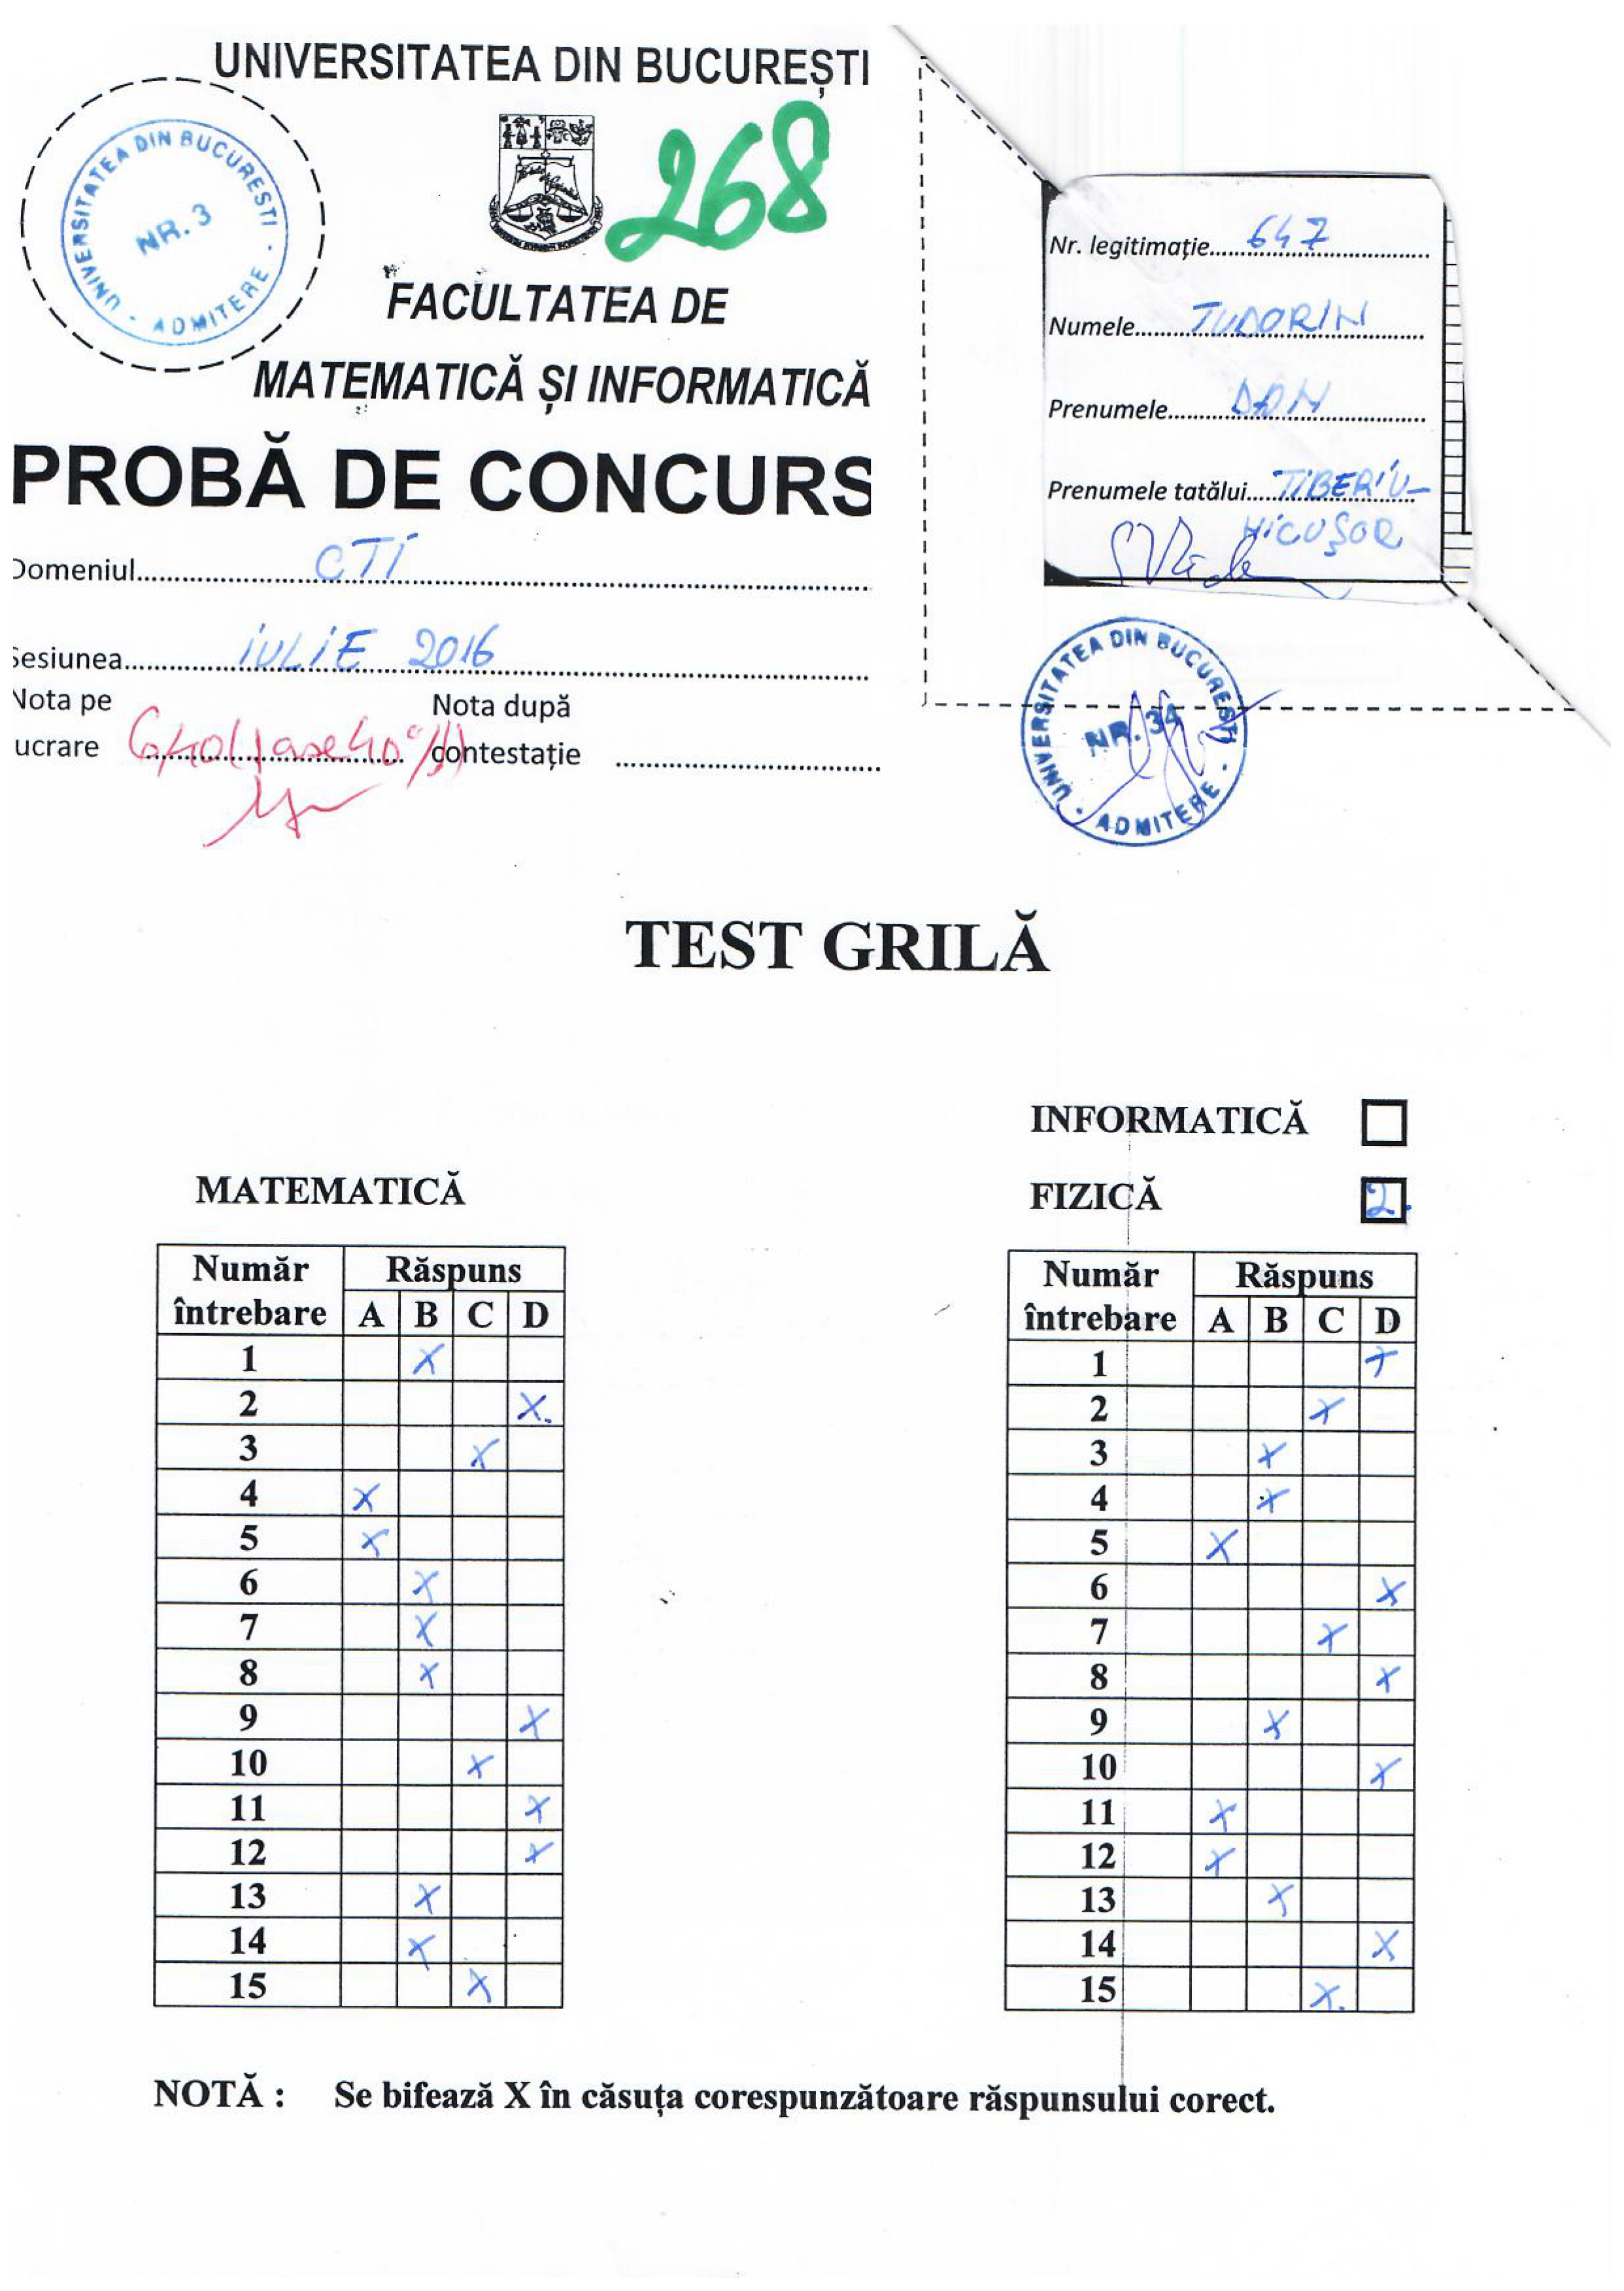 UNIVERSITATEA DIN BUCUREȘTI
268
UNIVERSITATEA DIN BUCURESTI · ADMITERE ·
NR. 3
FACULTATEA DE
MATEMATICĂ ȘI INFORMATICĂ
PROBĂ DE CONCURS
Domeniul CTI
Sesiunea IULIE 2016
Nota pe
lucrare 6,40 (șase 40%)
Nota după
contestație
Nr. legitimație 647
Numele TUDORIN
Prenumele DAN
Prenumele tatălui TIBERIU-
NICUȘOR
UNIVERSITATEA DIN BUCURESTI · ADMITERE ·
NR. 34
TEST GRILĂ
MATEMATICĂ
Număr întrebare Răspuns
A B C D
1 X
2 X.
3 X
4 X
5 X
6 X
7 X
8 X
9 X
10 X
11 X
12 X
13 X
14 X
15 X
INFORMATICĂ
FIZICĂ 2.
Număr întrebare Răspuns
A B C D
1 X
2 X
3 X
4 X
5 X
6 X
7 X
8 X
9 X
10 X
11 X
12 X
13 X
14 X
15 X.
NOTĂ : Se bifează X în căsuța corespunzătoare răspunsului corect.